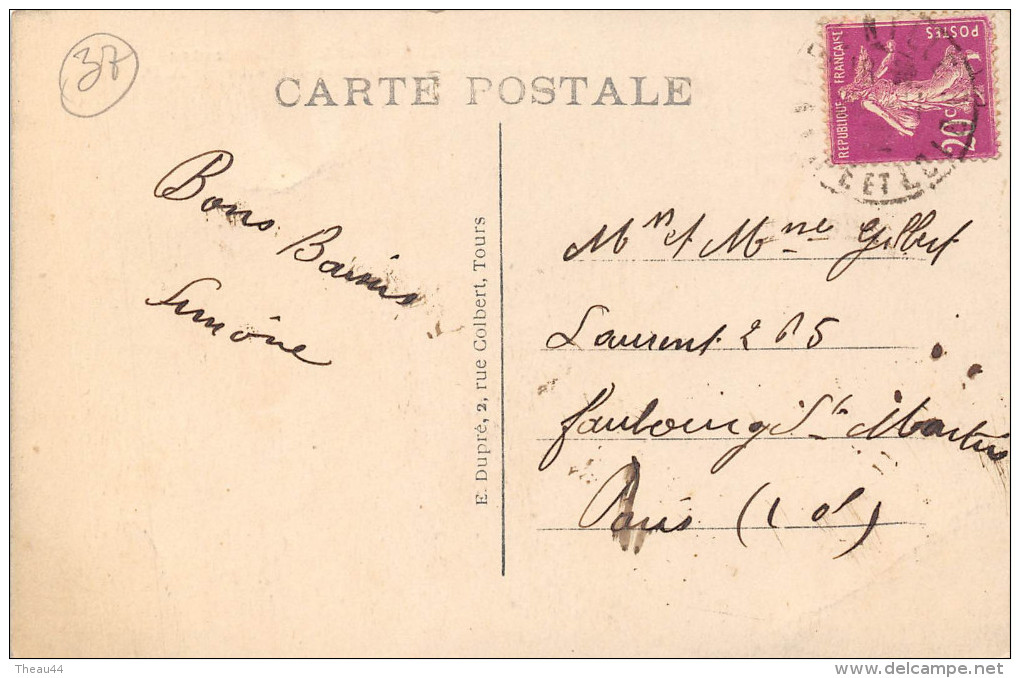 37
CARTE POSTALE
REPUBLIQUE FRANÇAISE
POSTES
20c
E ET L
Bons Baisers
Simone
E. Dupré, 2, rue Colbert, Tours
Mr et Mme Gilbert
Laurent 205
faubourg St Martin
Paris (10)
Theau44
www.delcampe.net